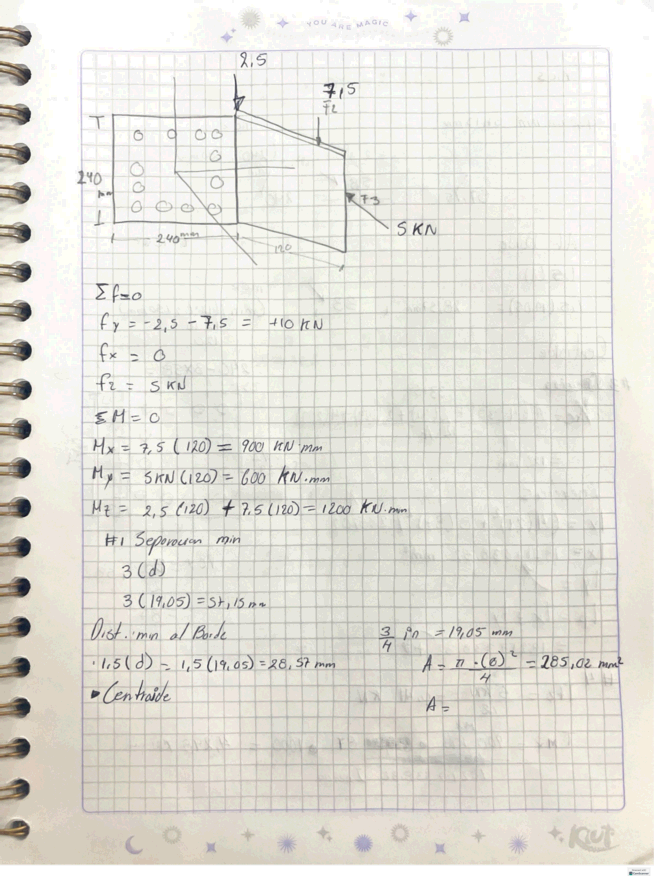 YOU ARE MAGIC
2,5
7,5
Fz
240
mm
F3
5 KN
240 mm
120
Σf=0
fy = -2,5 - 7,5 = +10 KN
fx = 0
fz = 5 KN
ΣM = 0
Mx = 7,5 (120) = 900 KN·mm
My = 5KN (120) = 600 KN·mm
Mz = 2,5 (120) + 7,5 (120) = 1200 KN·mm
#1 Separacion min
3(d)
3 (19,05) = 57,15 mm
Dist. min al Borde
3/4 in = 19,05 mm
· 1,5(d) = 1,5 (19,05) = 28,57 mm
A = π·(0)²/4 = 285,02 mm²
• Centroide
A =